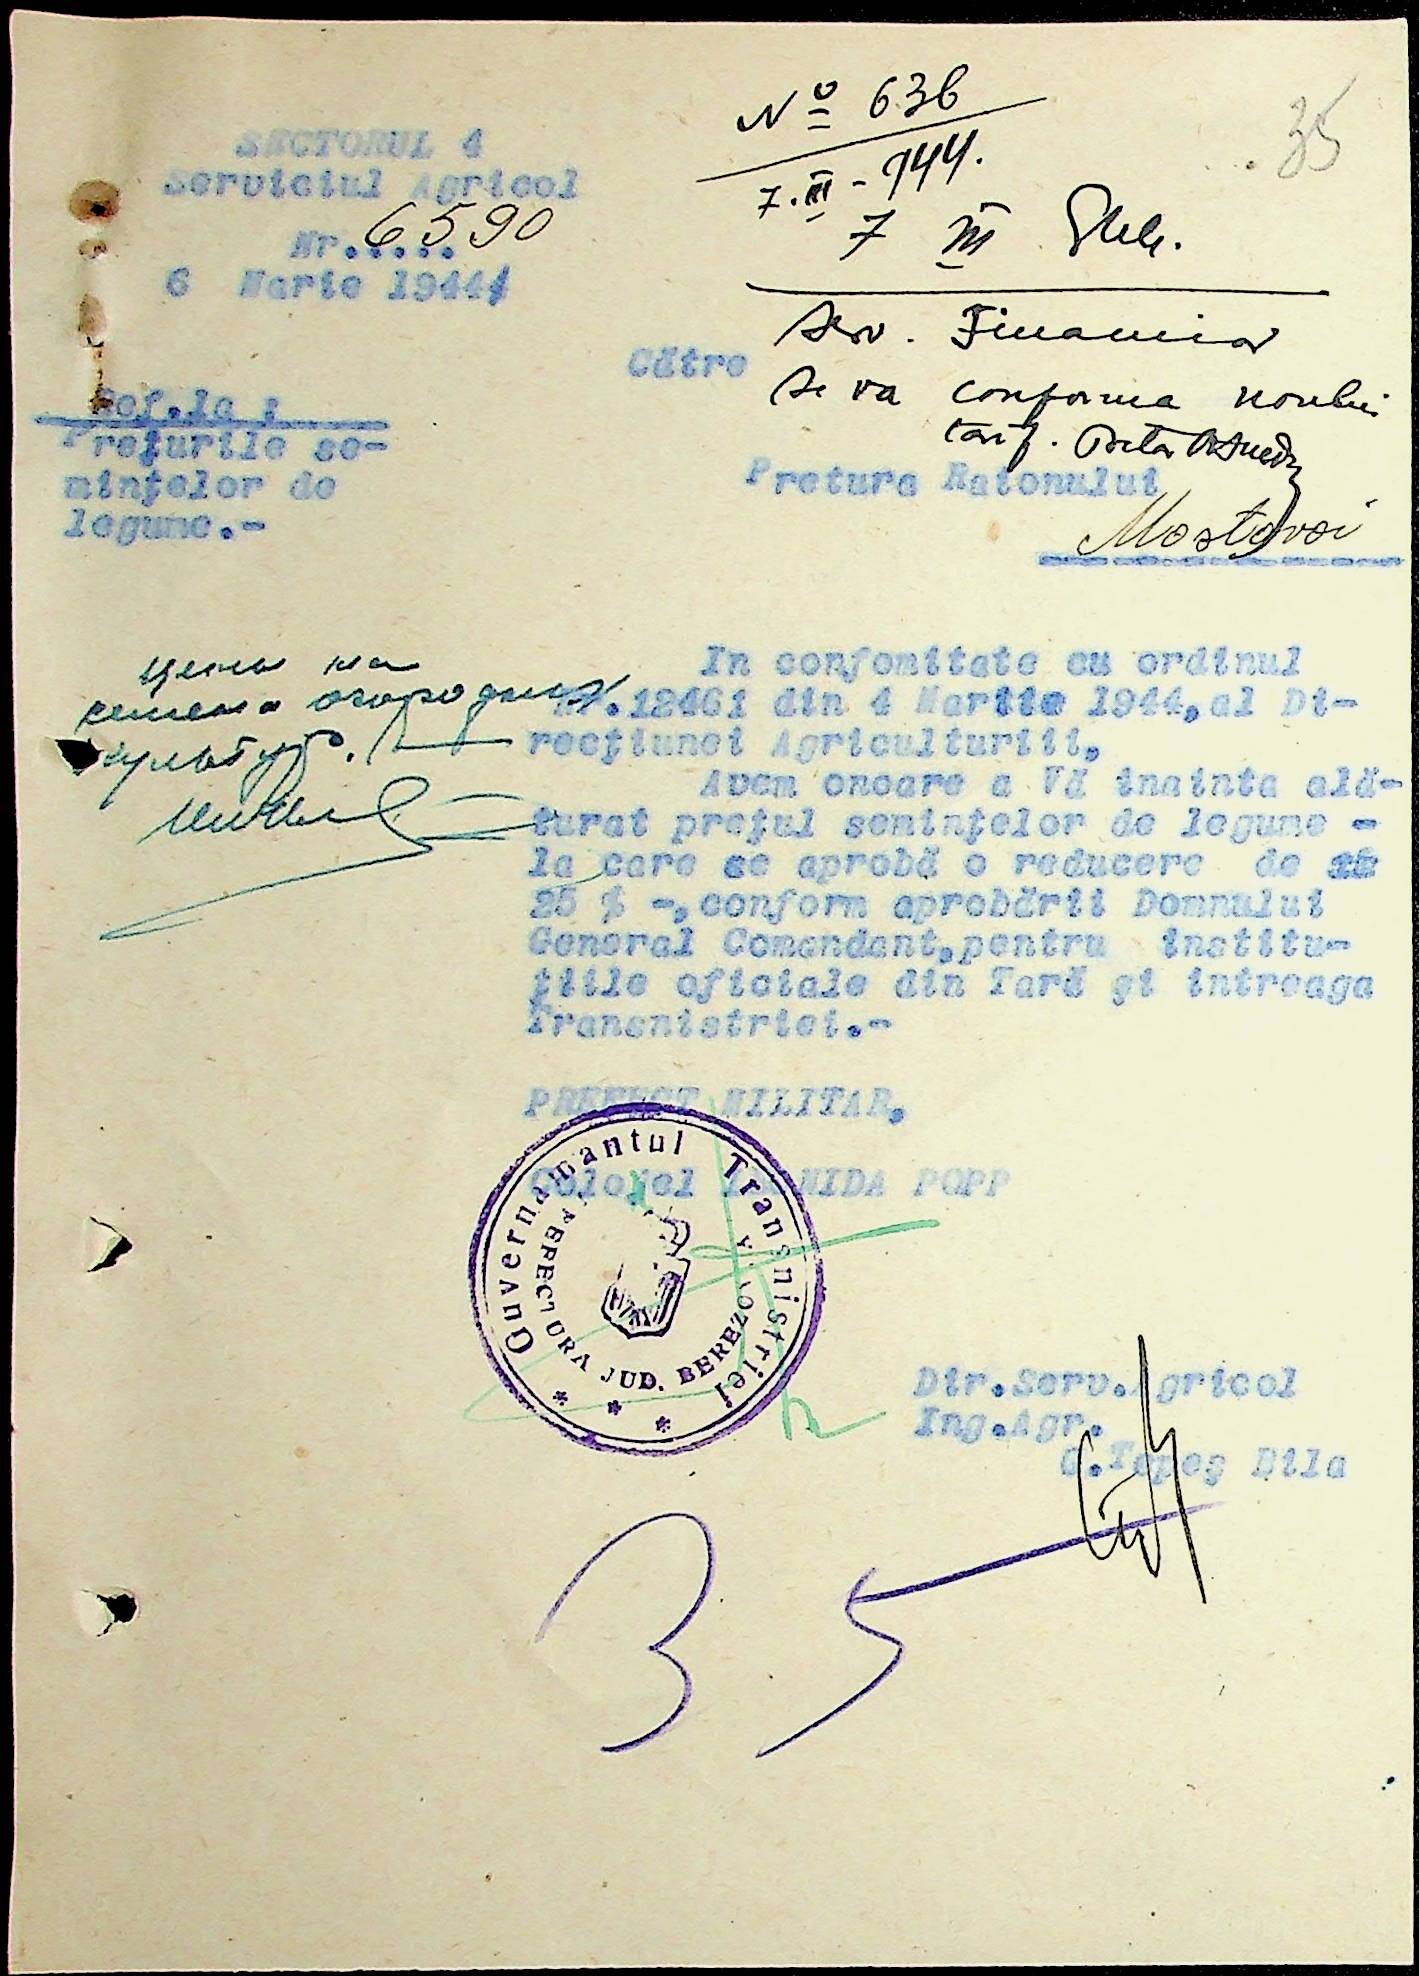 Nº 636
7.III-944.
35
SECTORUL 4
Serviciul Agricol
Nr..... 6590
6 Marte 1944
7 III
Serv. Financiar
Către
Se va conforma noului
tarif.
Ref.la :
Prețurile se-
mințelor de
legume.-
Pretura Raionului
Mostovoi
Цены на
семена огородних
культур.
In confomitate cu ordinul
Nr.12461 din 4 Martie 1944,al Di-
recțiunei Agriculturiii,
Avem onoare a Vă inainta ală-
turat prețul semințelor de legume -
la care se aprobă o reducere de
25 % -,conform aprobării Domnului
General Comandant,pentru institu-
țiile oficiale din Tară și intreaga
Transnistriei.-
PREFECT MILITAR,
Colonel LEONIDA POPP
Guvernamantul Transnistriei
PREFECTURA JUD. BEREZOVCA
Dir.Serv.Agricol
Ing.Agr.
C.Tepeș Bila
35